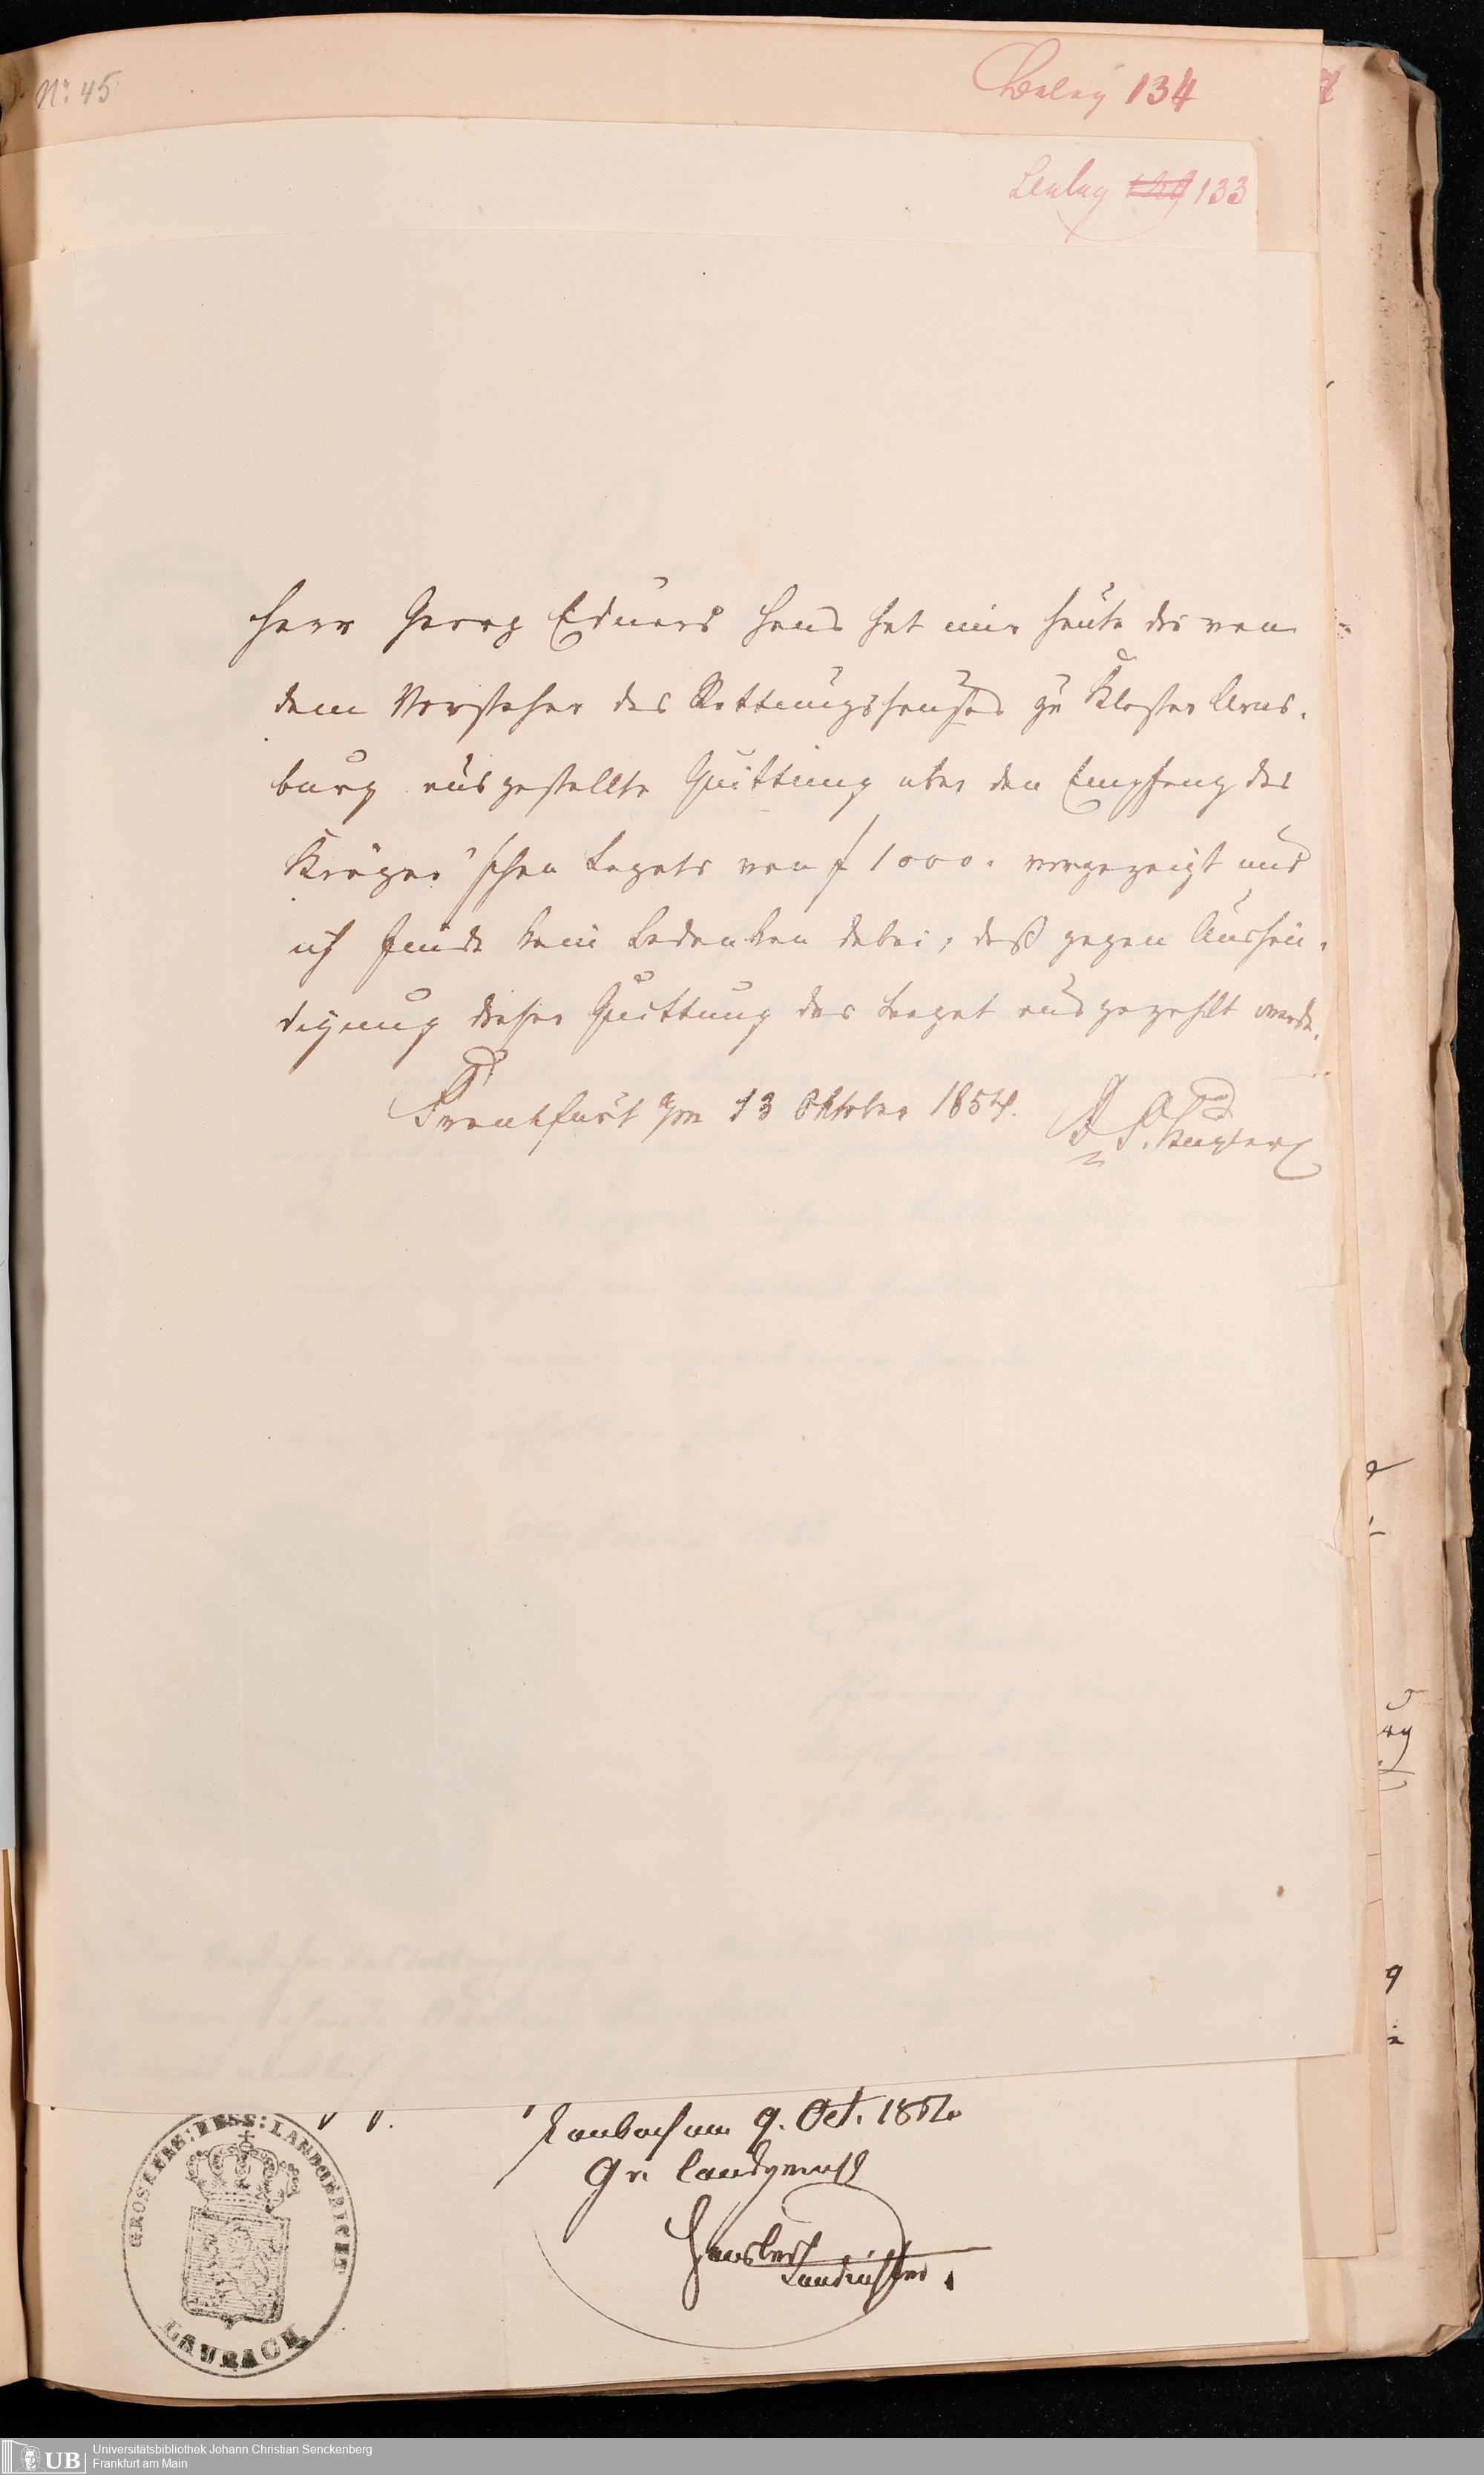 No: 45
Beleg 134
Beleg 129 133
Herr Georg Eduard Hand hat mir heute die von
dem Vorsteher des Rettungshauses zu Kloster Arns-
burg ausgestellte Quittung über den Empfang des
Kröger'schen Legats von f 1000. vorgezeigt und
ich finde kein Bedenken dabei, daß gegen Aushän-
digung dieser Quittung das Legat ausgezahlt werde.
Frankfurt a/m 13 Oktober 1854.
Laubach am 9. Oct. 1854
Gr. Landgericht
Landrichter.
GROSHERZ: HESS: LANDGERICHT
LAUBACH
UB
Universitätsbibliothek Johann Christian Senckenberg
Frankfurt am Main